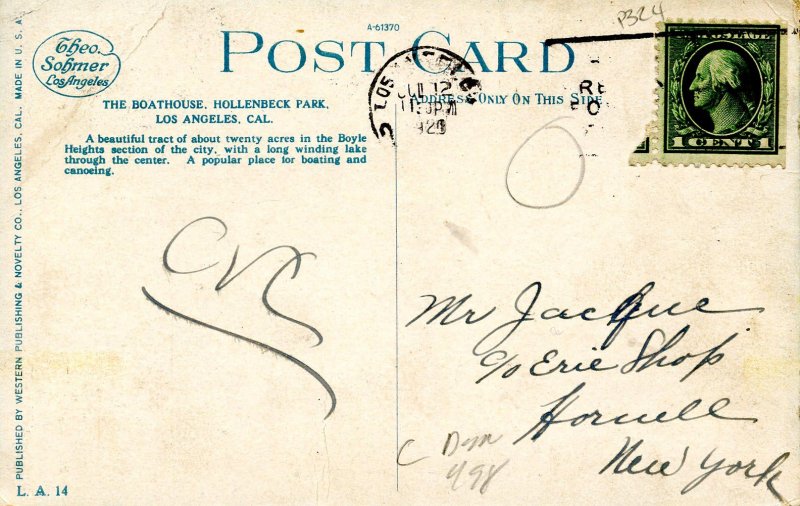 P324
A-61370
Theo.
Sohmer
Los Angeles
POST CARD
THE BOATHOUSE, HOLLENBECK PARK,
LOS ANGELES, CAL.
A beautiful tract of about twenty acres in the Boyle
Heights section of the city, with a long winding lake
through the center. A popular place for boating and
canoeing.
ADDRESS ONLY ON THIS SIDE
JUL 12
1 CENT 1
Mr Jacque
c/o Erie Shop
Hornell
New York
498
PUBLISHED BY WESTERN PUBLISHING & NOVELTY CO., LOS ANGELES, CAL. MADE IN U. S. A.
L. A. 14